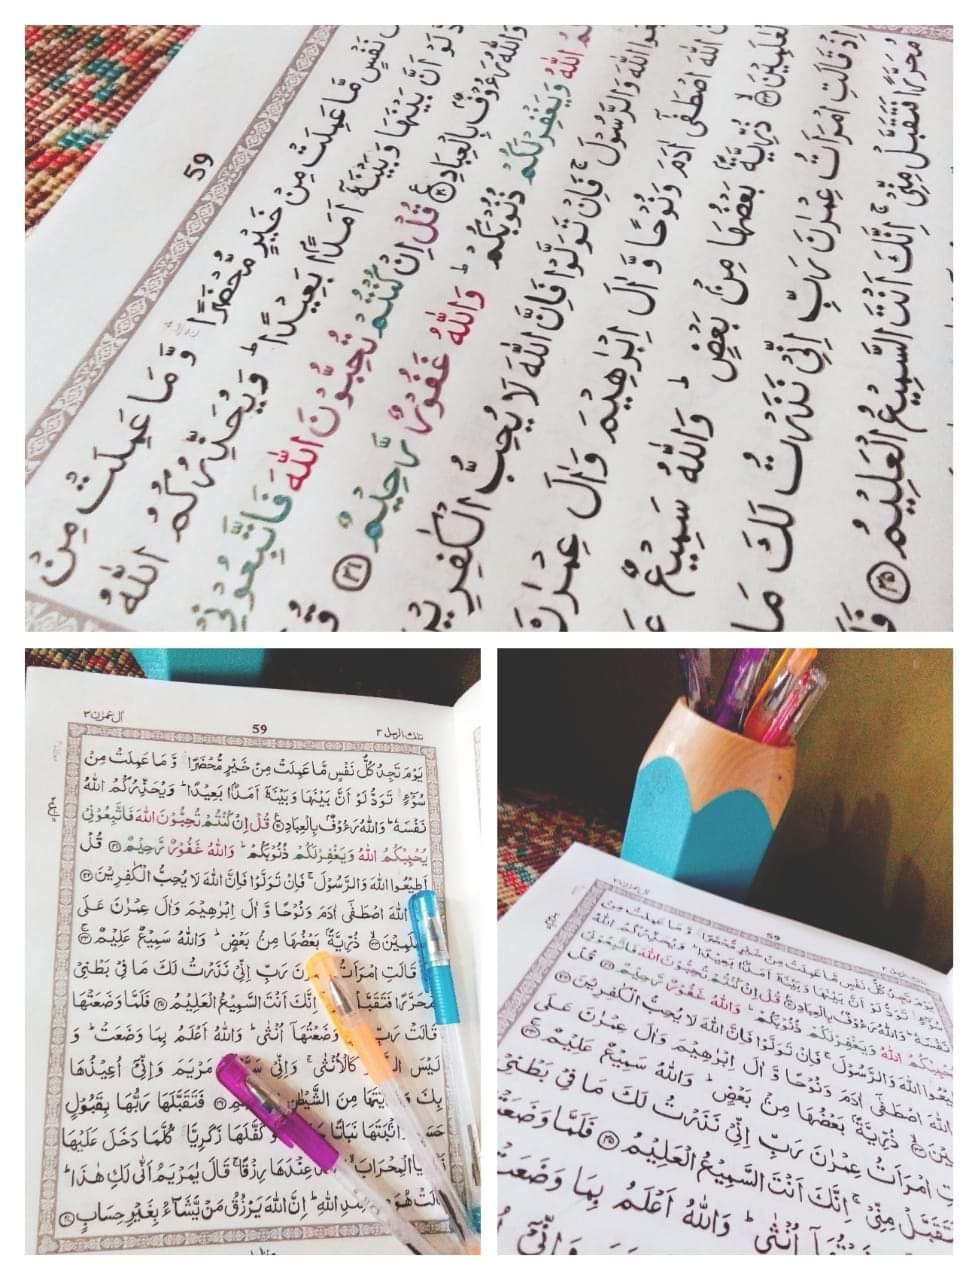 59
مَّا عَمِلَتْ مِنْ خَيْرٍ مُّحْضَرًا ۛۚ وَّ مَا عَمِلَتْ مِنْ
لَوْ اَنَّ بَيْنَهَا وَبَيْنَهٗٓ اَمَدًۢا بَعِيْدًا ؕ وَيُحَذِّرُكُمُ اللّٰهُ
وَاللّٰهُ رَءُوْفٌۢ بِالْعِبَادِ ۝۳۰ قُلْ اِنْ كُنْتُمْ تُحِبُّوْنَ اللّٰهَ فَاتَّبِعُوْنِيْ
اللّٰهُ وَيَغْفِرْلَكُمْ ذُنُوْبَكُمْ ؕ وَاللّٰهُ غَفُوْرٌ رَّحِيْمٌ ۝۳۱
اللّٰهَ وَالرَّسُوْلَ ۚ فَاِنْ تَوَلَّوْا فَاِنَّ اللّٰهَ لَا يُحِبُّ الْكٰفِرِيْنَ
اللّٰهَ اصْطَفٰٓى اٰدَمَ وَنُوْحًا وَّ اٰلَ اِبْرٰهِيْمَ وَاٰلَ عِمْرٰنَ
ذُرِّيَّةًۢ بَعْضُهَا مِنْۢ بَعْضٍ ؕ وَاللّٰهُ سَمِيْعٌ
اِذْ قَالَتِ امْرَاَتُ عِمْرٰنَ رَبِّ اِنِّيْ نَذَرْتُ لَكَ مَا
مُحَرَّرًا فَتَقَبَّلْ مِنِّيْ ۚ اِنَّكَ اَنْتَ السَّمِيْعُ الْعَلِيْمُ ۝۳۵
اٰل عمرٰن ۳
59
تلك الرسل ۳
يَوْمَ تَجِدُ كُلُّ نَفْسٍ مَّا عَمِلَتْ مِنْ خَيْرٍ مُّحْضَرًا ۛۚ وَّ مَا عَمِلَتْ مِنْ
سُوْٓءٍ ۛۚ تَوَدُّ لَوْ اَنَّ بَيْنَهَا وَبَيْنَهٗٓ اَمَدًۢا بَعِيْدًا ؕ وَيُحَذِّرُكُمُ اللّٰهُ
نَفْسَهٗ ؕ وَاللّٰهُ رَءُوْفٌۢ بِالْعِبَادِ ۝۳۰ قُلْ اِنْ كُنْتُمْ تُحِبُّوْنَ اللّٰهَ فَاتَّبِعُوْنِيْ
يُحْبِبْكُمُ اللّٰهُ وَيَغْفِرْلَكُمْ ذُنُوْبَكُمْ ؕ وَاللّٰهُ غَفُوْرٌ رَّحِيْمٌ ۝۳۱ قُلْ
اَطِيْعُوا اللّٰهَ وَالرَّسُوْلَ ۚ فَاِنْ تَوَلَّوْا فَاِنَّ اللّٰهَ لَا يُحِبُّ الْكٰفِرِيْنَ ۝۳۲
اللّٰهَ اصْطَفٰٓى اٰدَمَ وَنُوْحًا وَّ اٰلَ اِبْرٰهِيْمَ وَاٰلَ عِمْرٰنَ عَلَى
ذُرِّيَّةًۢ بَعْضُهَا مِنْۢ بَعْضٍ ؕ وَاللّٰهُ سَمِيْعٌ عَلِيْمٌ ۝۳۴
قَالَتِ امْرَاَتُ رَبِّ اِنِّيْ نَذَرْتُ لَكَ مَا فِيْ بَطْنِيْ
مُحَرَّرًا اِنَّكَ اَنْتَ السَّمِيْعُ الْعَلِيْمُ ۝۳۵ فَلَمَّا وَضَعَتْهَا
قَالَتْ رَبِّ وَضَعْتُهَآ اُنْثٰى ؕ وَاللّٰهُ اَعْلَمُ بِمَا وَضَعَتْ ؕ وَ
لَيْسَ كَالْاُنْثٰى ۚ وَاِنِّيْ مَرْيَمَ وَاِنِّيْٓ اُعِيْذُهَا
بِكَ مِنَ الشَّيْطٰنِ ۝۳۶ فَتَقَبَّلَهَا رَبُّهَا بِقَبُوْلٍ
نَبَاتًا وَّكَفَّلَهَا زَكَرِيَّا ؕ كُلَّمَا دَخَلَ عَلَيْهَا
الْمِحْرَابَ عِنْدَهَا رِزْقًا ۚ قَالَ يٰمَرْيَمُ اَنّٰى لَكِ هٰذَا ؕ
قَالَتْ هُوَ اللّٰهِ ؕ اِنَّ اللّٰهَ يَرْزُقُ مَنْ يَّشَآءُ بِغَيْرِ حِسَابٍ ۝۳۷
59
يَوْمَ تَجِدُ كُلُّ نَفْسٍ مَّا عَمِلَتْ مِنْ خَيْرٍ مُّحْضَرًا ۛۚ وَّ مَا عَمِلَتْ مِنْ
اَمَدًۢا بَعِيْدًا ؕ وَيُحَذِّرُكُمُ اللّٰهُ
وَاللّٰهُ رَءُوْفٌۢ بِالْعِبَادِ ۝۳۰ قُلْ اِنْ كُنْتُمْ تُحِبُّوْنَ اللّٰهَ فَاتَّبِعُوْنِيْ
اللّٰهُ وَيَغْفِرْلَكُمْ ذُنُوْبَكُمْ ؕ وَاللّٰهُ غَفُوْرٌ رَّحِيْمٌ ۝۳۱ قُلْ
اللّٰهَ وَالرَّسُوْلَ ۚ فَاِنْ تَوَلَّوْا فَاِنَّ اللّٰهَ لَا يُحِبُّ الْكٰفِرِيْنَ ۝۳۲
اللّٰهَ اصْطَفٰٓى اٰدَمَ وَنُوْحًا وَّ اٰلَ اِبْرٰهِيْمَ وَاٰلَ عِمْرٰنَ عَلَى
ذُرِّيَّةًۢ بَعْضُهَا مِنْۢ بَعْضٍ ؕ وَاللّٰهُ سَمِيْعٌ عَلِيْمٌ ۝۳۴
امْرَاَتُ عِمْرٰنَ رَبِّ اِنِّيْ نَذَرْتُ لَكَ مَا فِيْ بَطْنِيْ
مِنِّيْ ۚ اِنَّكَ اَنْتَ السَّمِيْعُ الْعَلِيْمُ ۝۳۵ فَلَمَّا
اُنْثٰى ؕ وَاللّٰهُ اَعْلَمُ بِمَا وَضَعَتْ
وَاِنِّيْ